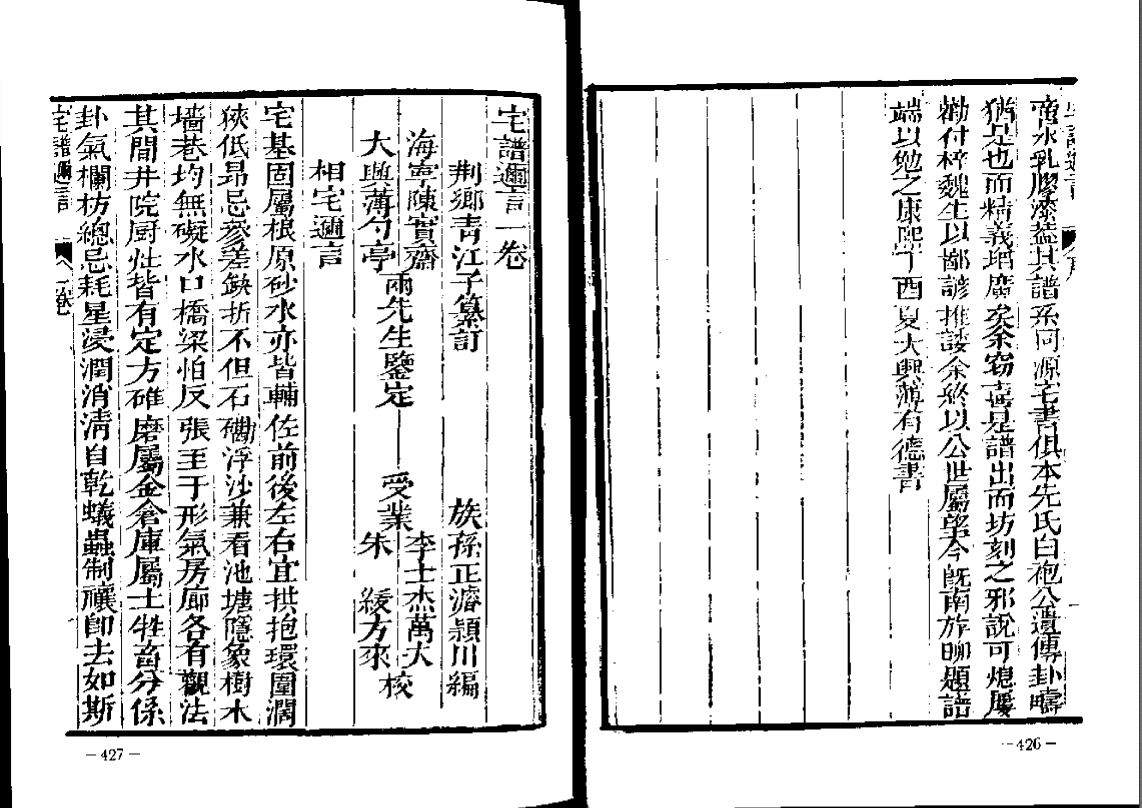 啻水乳膠漆葢其譜系同源宅書俱本先氏白袍公遺傳卦疇
猶是也而精義増廣矣余窃喜是譜出而坊刻之邪說可熄屢
勸付梓魏生以鄙諺推諉余終以公世屬望今旣南旋聊題譜
端以勉之康熙丁酉夏大興薄有德書
—426—
宅譜邇言一卷
荆鄉青江子纂訂 族孫正濬穎川編
海寧陳實齋
大興薄勺亭
兩先生鑒定——受業
李士杰萬大
朱 綬方來
校
相宅邇言
宅基固屬根原砂水亦皆輔佐前後左右宜拱抱環圍濶
狹低昻忌參差缺折不但石磡浮沙兼看池塘隱象樹木
墻巷均無礙水口橋梁怕反張至于形氣房廊各有觀法
其間井院厨灶皆有定方碓磨屬金倉庫屬土牲畜分係
卦氣欄枋總忌耗星浸潤消淸自乾蟻蟲制禳卽去如斯
宅譜邇言 一卷
—427—